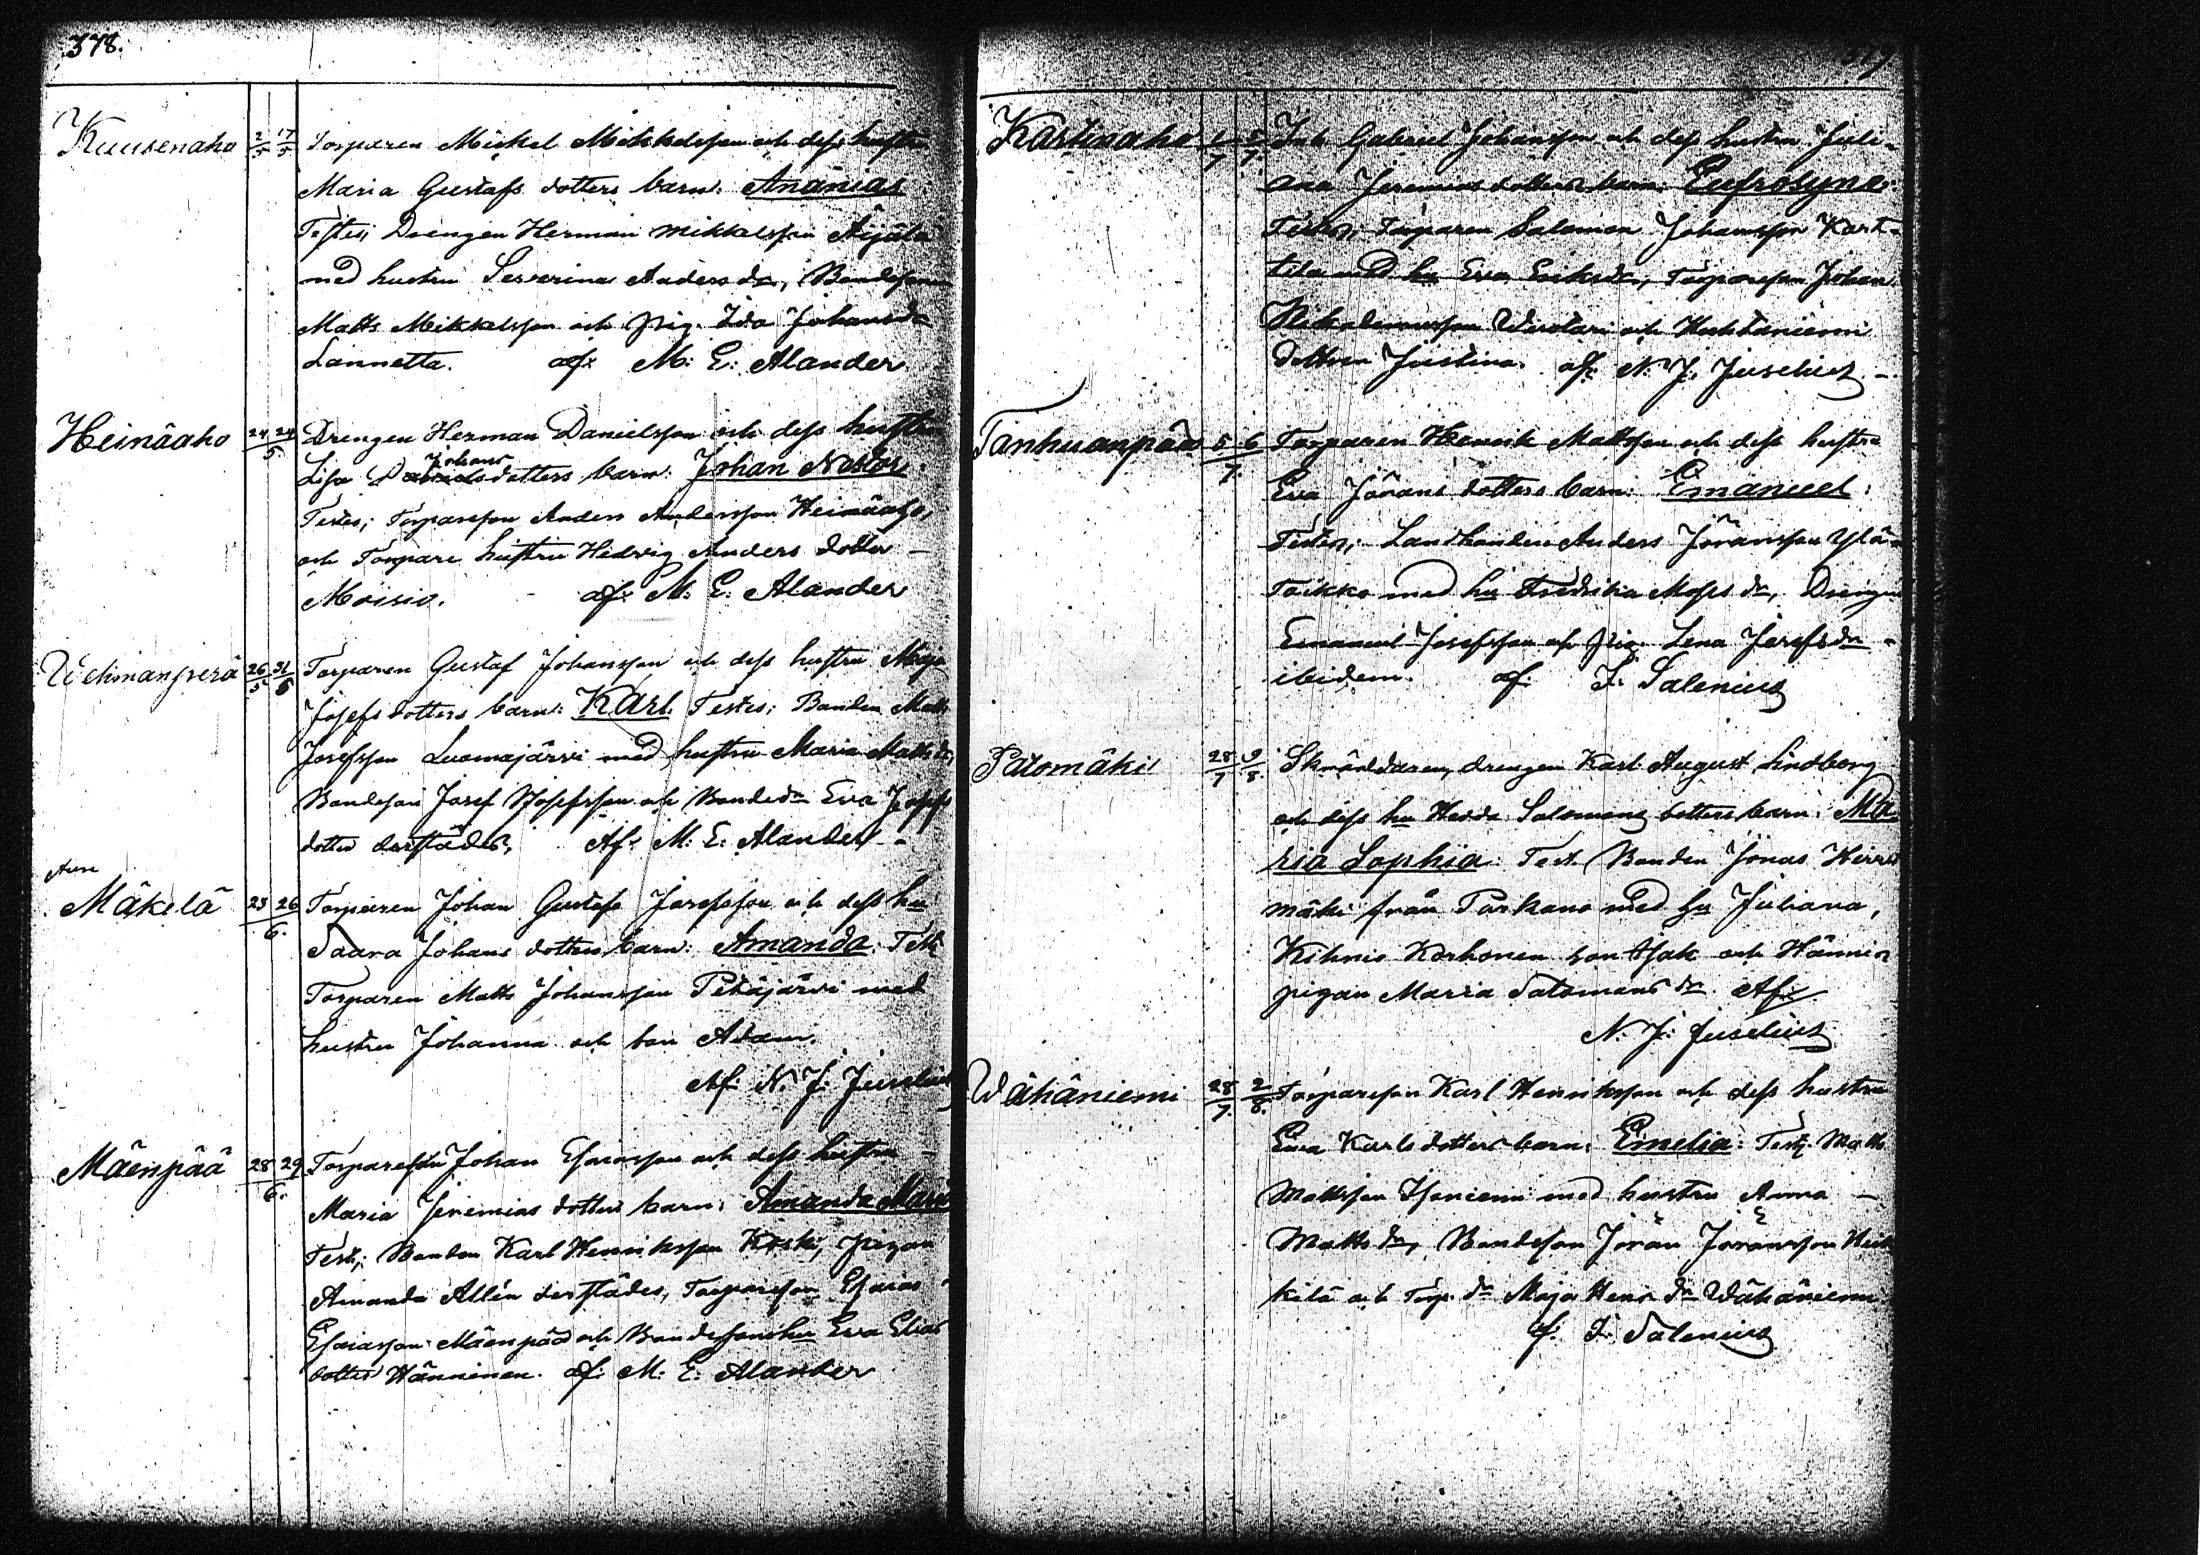 378.
Kuusenaho 2/5 17/5 Torparen Mickel Mikkelsson och dess hustru
Maria Gustafs dotters barn: Ananias
Testes; Drengen Herman Mikkelsson Äijälä
med hustru Severina Anders dr, Bondesonen
Matts Mikkelsson och pig. Ida Johansdr
Lannetta. af: M: E: Alander
Heinäaho 24 24/5. Drengen Herman Danielsson och dess hustru
Johans
Lisa dotters barn: Johan Nestor:
Testes; Torpareson Anders Andersson Heinäaho,
och Torpare hustru Hedvig Anders dotter –
Moisio. - af: M: E: Alander
Wehmanperä 26/5 31/5 Torparen Gustaf Johansson och dess hustru Maja
Josefs dotters barn: Karl. Testes; Bonden Matts
Josefsson Luomajärvi med hustru Maria Matts dr,
Bondeson Josef Josefsson och Bondedr Eva Josefs
dotter derstädes, Af: M: E: Alander –
Mäkelä 23 26/6. Torparen Johan Gustaf Josefsson och dess hu
Saara Johans dotters barn: Amanda: Test:
Torparen Matts Johansson Petäjärvi med
hustru Johanna och son Adam.
Af N. J: Juselius
Mäenpää 28 29/6. Torpareson Johan Esaiasson och dess hustru –
Maria Jeremias dotters barn: Amanda Maria
Test; Bonden Karl Henriksson Koski, pigan
Amanda Allén derstädes, Torpareson Esaias
Esaiasson Mäenpää och Bondesons hu Eva Elias
dotter Hänninen. af: M: E: Alander
Karttiaho 1/7 5/7. Inh Gabriel Johansson och dess hustru Juli-
ana Jeremias dotters barn: Eufrosyne:
Testes; Torparen Salomon Johansson Kart-
tila med hu Eva Eriksdr, Torpareson Johan
Nikodemusson och
dottren Justina. af: N. J. Juselius –
Tanhuanpää 5 6/7. Torparen Henrik Mattsson och dess hustru
Eva Jörans dotters barn: Emanuel:
Testes; Landbonden Anders Jöransson Ylä-
Toikko med hu Fredrika Moses dr, Drengen
Emanuel Josefsson och pig. Lena Josefsdr –
ibidem. af: F. Salenius
Patomäki 28/7 9/8. Skräddaren, drengen Karl August Lindberg
och dess hu Hedda Salomons dotters barn: Ma-
ria Sophia: Test. Bonden Jonas
mäki från Parkano med hu Juliana,
Kihniö Korhonen son Isak och
pigan Maria Salomons dr. Af:
N. J: Juselius
Wähäniemi 28/7. 2/8. Torpareson Karl Henriksson och dess hustru
Eva Karls dotters barn: Emelia: Test. Matts
Mattsson Isoniemi med hustru Anna –
Matts dr, Bondeson Jöran Jöransson Heik-
kilä och Torp. dr Maja Henr. dr Wähäniemi.
af: F. Salenius